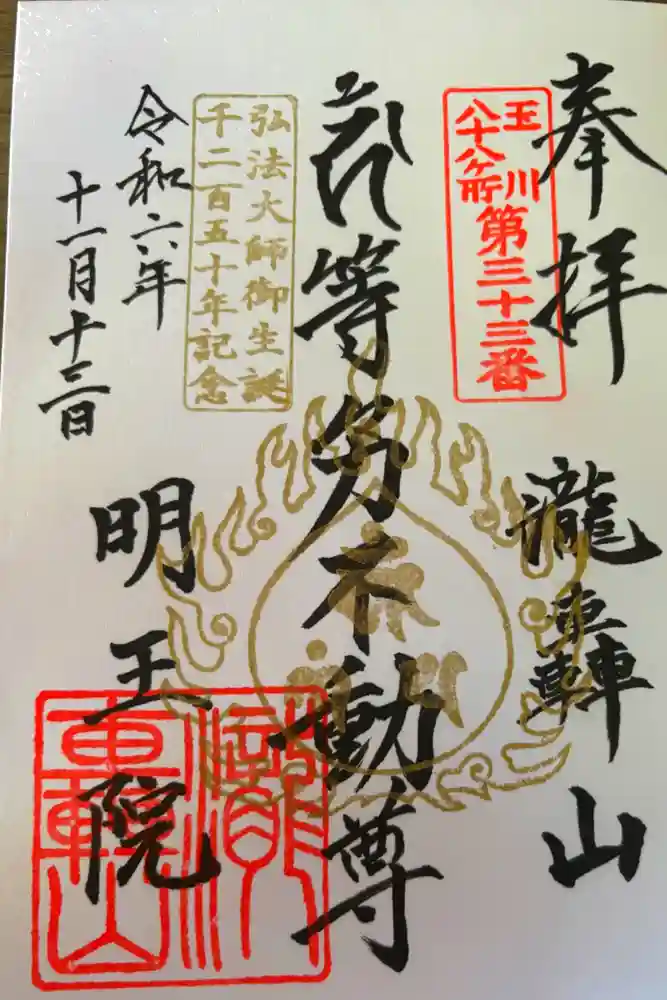 奉拝
瀧轟山
玉川
八十八ヶ所
第三十三番
等々力不動尊
弘法大師御生誕
千二百五十年記念
令和六年
十一月十三日
明王院
瀧轟山